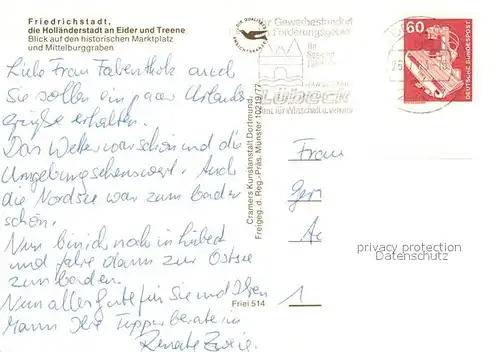 Friedrichstadt,
die Holländerstadt an Eider und Treene
Blick auf den historischen Marktplatz
und Mittelburggraben
Liebe Frau Fabentholz auch
Sie sollen ein paar Urlaubs
grüße erhalten.
Das Wetter war schön und die
Umgebung sehenswert. Auch
die Nordsee war zum baden
schön.
Nun bin ich noch in Lübeck
und fahre dann zur Ostsee
zum baden.
Nun alles gute für Sie und Ihren
Mann Ihre Tupperberaterin
Renate
Friei 514
Cramers Kunstanstalt Dortmund,
Freigeg. d. Reg.-Präs. Münster 10219/77
Gewerbestandort
Förderungsgebiet
Lübeck
60
DEUTSCHE BUNDESPOST
Frau
1
privacy protection
DATENSCHUTZ